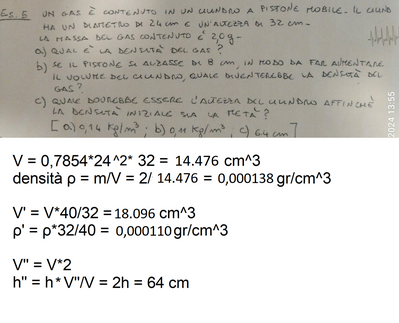 ES. 5 UN GAS È CONTENUTO IN UN CILINDRO A PISTONE MOBILE. IL CILIND
HA UN DIAMETRO DI 24 cm E UN'ALTEZZA DI 32 cm.
LA MASSA DEL GAS CONTENUTO È 2,0g.
a) QUAL È LA DENSITÀ DEL GAS?
b) SE IL PISTONE SI ALZASSE DI 8 cm, IN MODO DA FAR AUMENTARE
IL VOLUME DEL CILINDRO, QUALE DIVENTEREBBE LA DENSITÀ DEL
GAS?
c) QUALE DOVREBBE ESSERE L'ALTEZZA DEL CILINDRO AFFINCHÈ
LA DENSITÀ INIZIALE SIA LA METÀ?
[a) 0,14 kg/m³; b) 0,11 kg/m³; c) 64 cm]
2024 13:55
V = 0,7854*24^2* 32 = 14.476 cm^3
densità ρ = m/V = 2/ 14.476 = 0,000138 gr/cm^3
V' = V*40/32 = 18.096 cm^3
ρ' = ρ*32/40 = 0,000110 gr/cm^3
V'' = V*2
h'' = h*V''/V = 2h = 64 cm